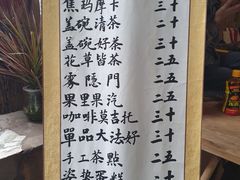 焦玛摩卡 三十
盖碗清茶 二十
盖碗好茶 三十
花草皆茶 二十五
家隐門 二五
果里果汽 二五
咖啡莫吉托 三十
單品大法好 三十
手工茶點 二十